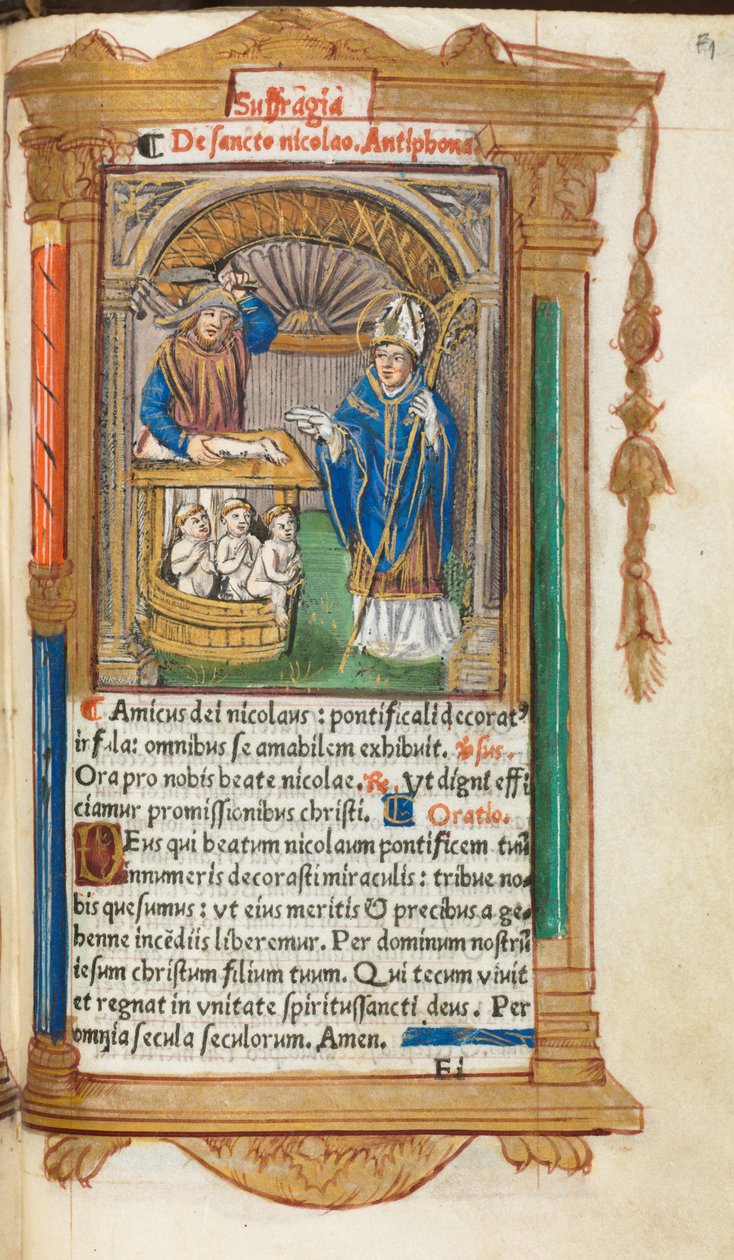 F1
Suffrāgiā
⁋ De sancto nicolao. Antiphona.
⁋ Amicus dei nicolaus : pontificali decoratꝰ
infula: omnibus se amabilem exhibuit. ℣sus.
Ora pro nobis beate nicolae. ℟. Vt digni effi
ciamur promissionibus christi. ⁋ Oratio.
DEus qui beatum nicolaum pontificem tuū
innumeris decorasti miraculis : tribue no-
bis quesumus : vt eius meritis & precibus a ge-
henne incēdiis liberemur. Per dominum nostrū
iesum christum filium tuum. Qui tecum viuit
et regnat in vnitate spiritussancti deus. Per
omnia secula seculorum. Amen.
Ei